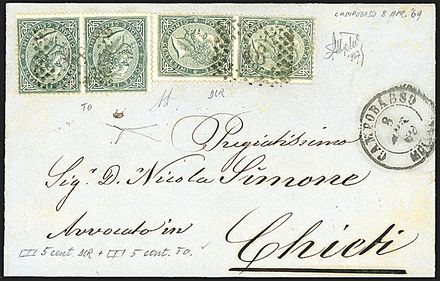 CAMPOBASSO 8 APR. '69
TO
DLR
CAMPOBASSO
8
APR
Pregiatissimo
Sig. D. Nicola Simone
Avvocato in
Chieti
5 cent. DLR + 5 cent. TO.